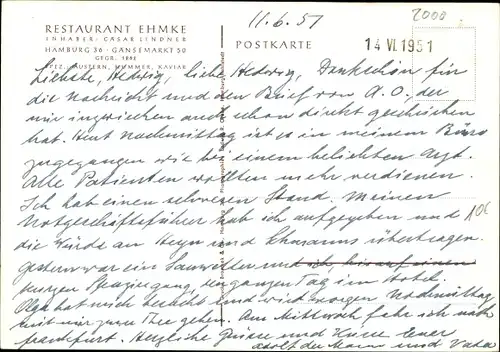 11.6.51
2000
RESTAURANT EHMKE
INHABER: CÄSAR LINDNER
HAMBURG 36 · GÄNSEMARKT 50
GEGR. 1882
SPEZ. AUSTERN, HUMMER, KAVIAR
POSTKARTE
14 VI. 1951
Liebste, Hedwig, liebe Hedwig, Dankschön für
die Nachricht und den Brief von A.O., der
mir inzwischen auch schon direkt geschrieben
hat. Heut Nachmittag ist es in meinem Büro
zugegangen wie bei einem beliebten Arzt.
Alle Patienten wollten mehr verdienen.
Ich hab einen schweren Stand. Meinen
hab ich aufgegeben und
die Würde an Heyn und übertragen.
Gestern war ein Sauwetter und
kurzen Spaziergang, ganzen Tag im Hotel.
Olga hat mich besucht und wird morgen Nachmittag
mit mir zum Tee gehen. Am Mittwoch fahr ich nach
Frankfurt. Herzliche Grüsse und Küsse Euer
Adolf der Mann und Vater